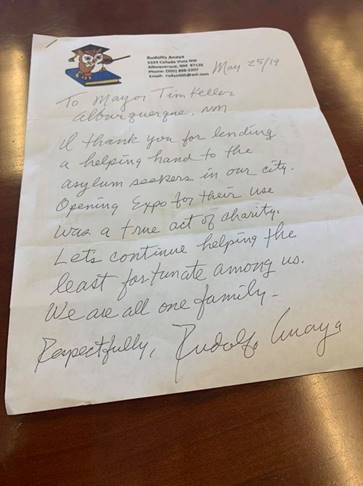 Rudolfo Anaya
Albuquerque, NM 87120
May 25/19
To Mayor Tim Keller
Albuquerque, NM
I thank you for lending
a helping hand to the
asylum seekers in our city.
Opening Expo for their use
was a true act of charity.
Lets continue helping the
least fortunate among us.
We are all one family.
Respectfully, Rudolfo Anaya